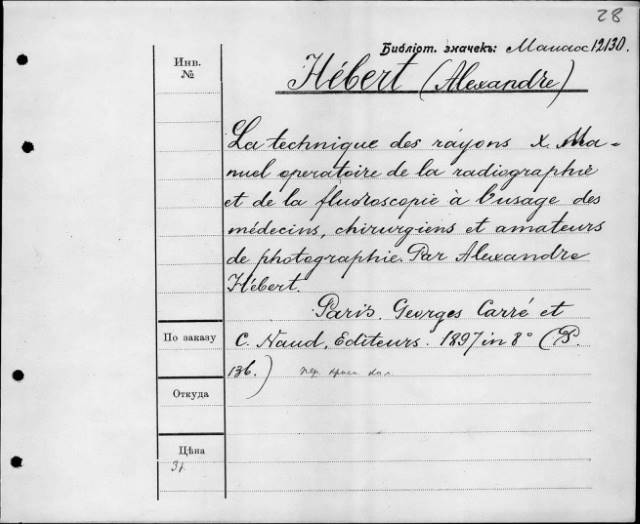 28
Библіот. значекъ: Манаос 12130.
Инв.
№
Hébert (Alexandre)
La technique des rayons x. Ma-
nuel operatoire de la radiographie
et de la fluoroscopie à l'usage des
médecins, chirurgiens et amateurs
de photographie. Par Alexandre
Hébert.
Paris. Georges Carré et
По заказу
C. Naud, Editeurs. 1897 in 8° (P.
136.)
Откуда
Цѣна